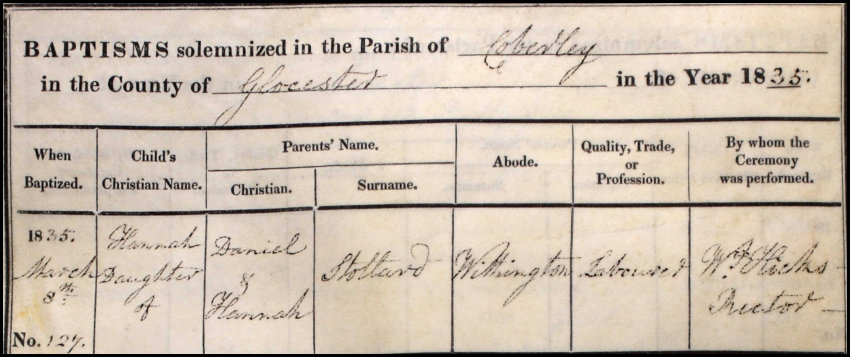 BAPTISMS solemnized in the Parish of Coberley
in the County of Glocester in the Year 1835.
When Baptized.
Child's Christian Name.
Parents' Name.
Christian.
Surname.
Abode.
Quality, Trade, or Profession.
By whom the Ceremony was performed.
1835.
March
8th
No. 127.
Hannah
Daughter
of
Daniel
&
Hannah
Stollard
Withington
Labourer
Wm Hicks
Rector